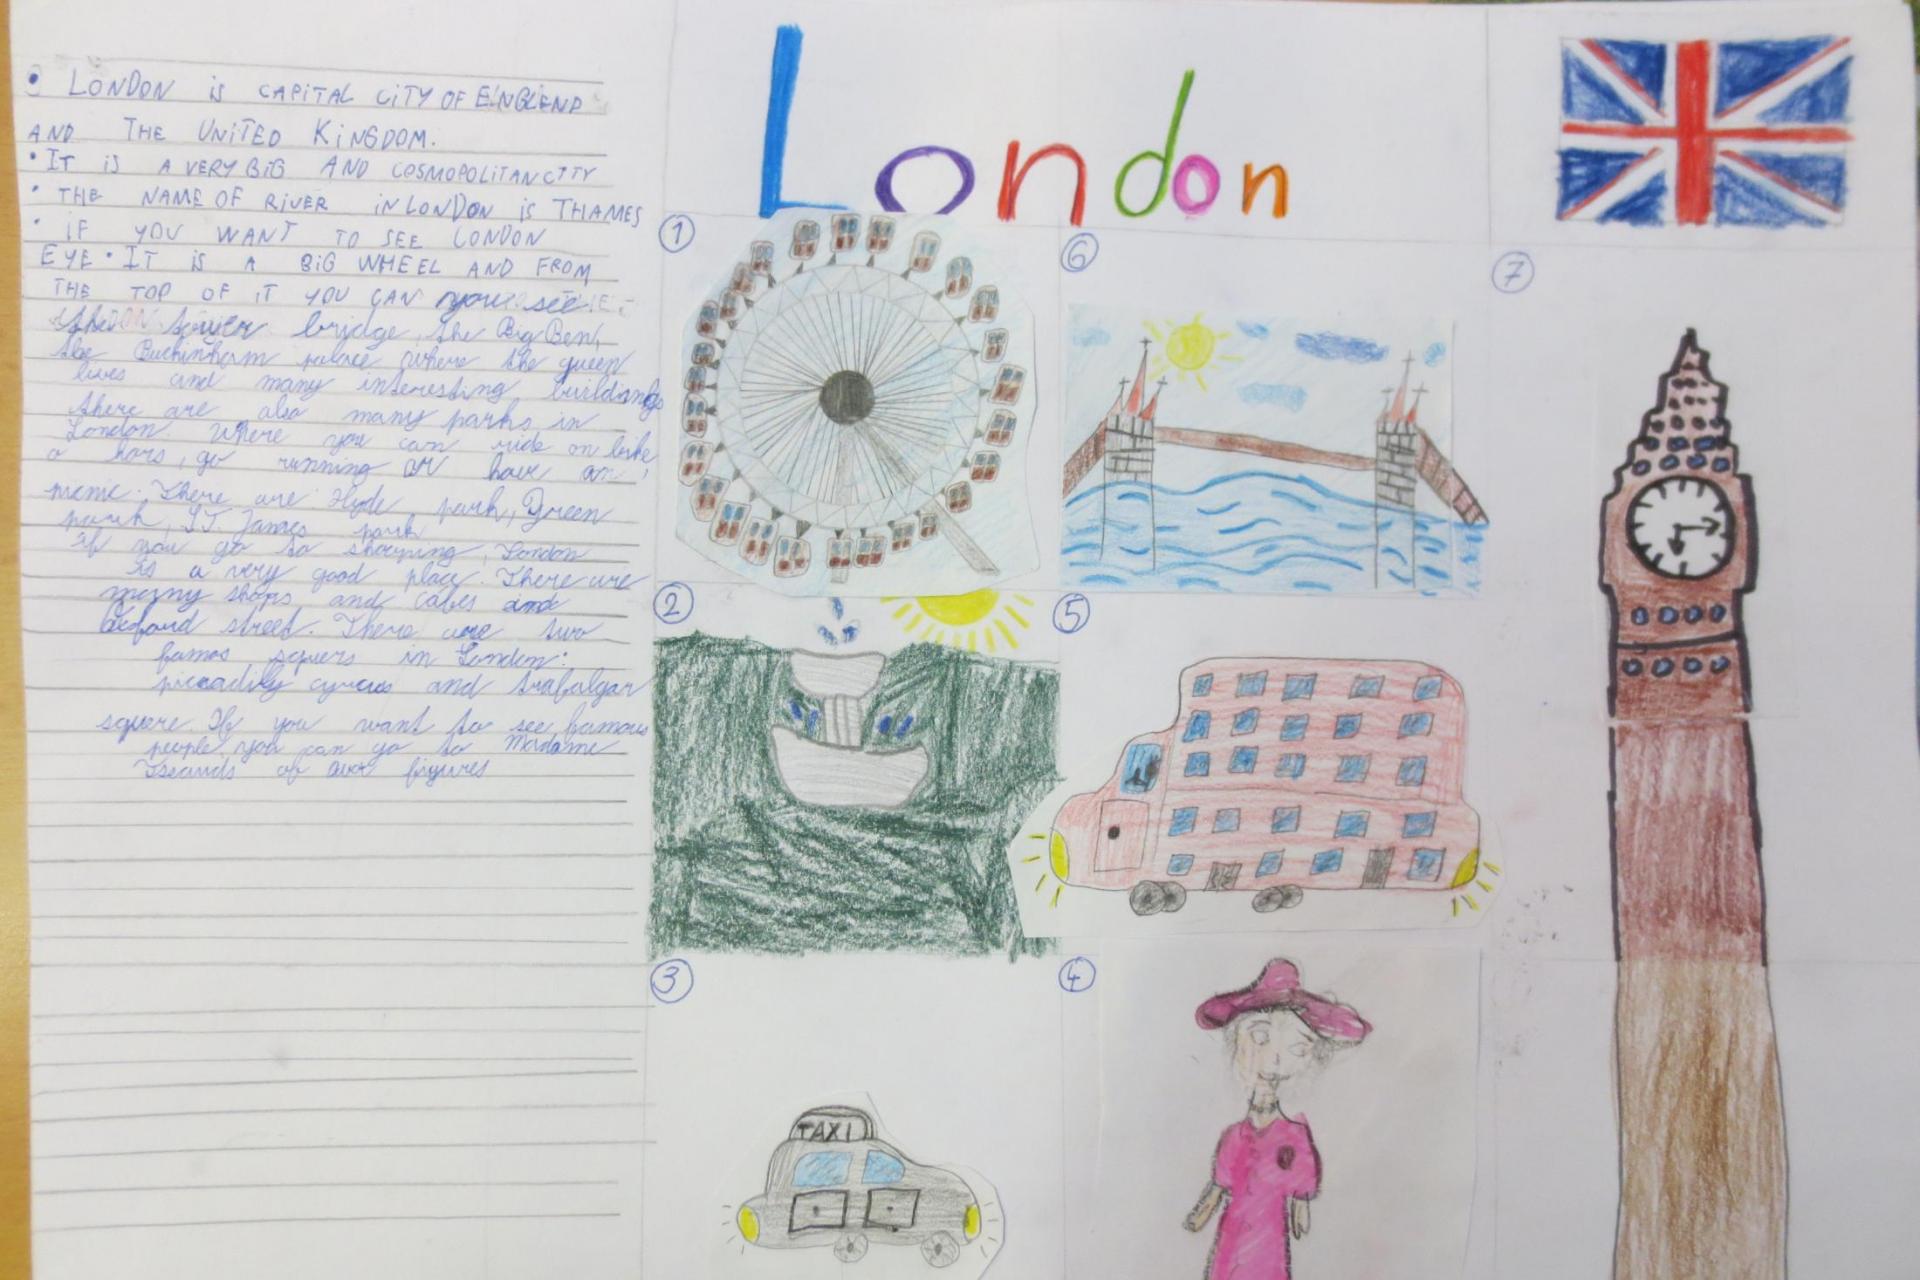 London
• LONDON iS CAPITAL CiTY OF ENGLEND
AND THE UNiTED KiNGDOM.
• IT iS A VERY BiG AND COSMOPOLITAN CITY
• THE NAME OF RiVER iN LONDON iS THAMES
• iF YOU WANT TO SEE LONDON
EYE • IT iS A BiG WHEEL AND FROM
THE TOP OF iT YOU CAN see
the tower bridge, the Big Ben,
the Buckinham palace where the queen
lives and many interesting buildings
there are also many parks in
London. Where you can ride on bike
a hors, go running or have an
picnic. There are: Hyde park, Green
park, ST. James park
If you go to shopping, London
is a very good place. There are
many shops and cafes
street. There are two
famos squers in London:
piccadilly cyrcus and trafalgar
square. If you want to see famous
people you can go to Madame
of figures
1
6
7
2
5
3
4
TAXI